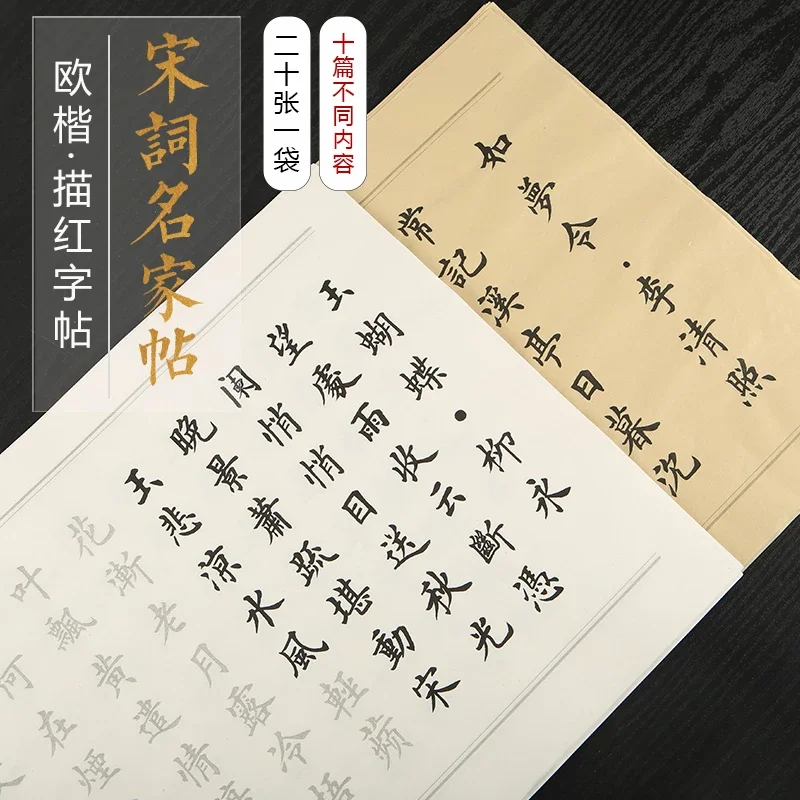 宋詞名家帖
欧楷·描红字帖
二十张一袋
十篇不同内容
如夢令·李清照
常記溪亭日暮沈
玉蝴蝶·柳永
望處雨收云斷憑
阑悄悄目送秋光
晚景蕭疏堪動宋
玉悲涼水風輕蘋
花漸老月露冷梧
叶飄黃遣情
何在煙